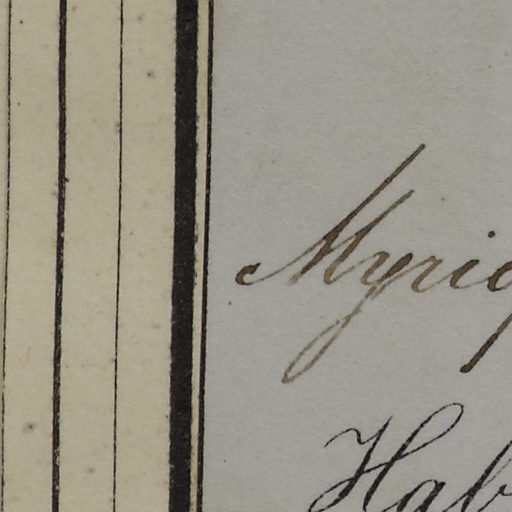 Myrio
Hab